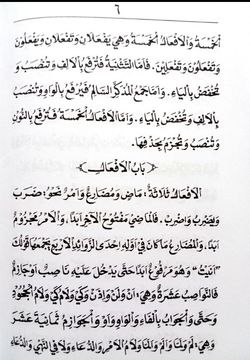 ٦
الْخَمْسَةُ وَالْأَفْعَالُ الْخَمْسَةُ وَهِيَ يَفْعَلَانِ وَتَفْعَلَانِ وَيَفْعَلُونَ
وَتَفْعَلُونَ وَتَفْعَلِينَ. فَأَمَّا التَّثْنِيَةُ فَتُرْفَعُ بِالْأَلِفِ وَتُنْصَبُ وَ
تُخْفَضُ بِالْيَاءِ. وَأَمَّا جَمْعُ الْمُذَكَّرِ السَّالِمِ فَيُرْفَعُ بِالْوَاوِ وَتُنْصَبُ
بِالْأَلِفِ وَتُخْفَضُ بِالْيَاءِ. وَأَمَّا الْأَفْعَالُ الْخَمْسَةُ فَتُرْفَعُ بِالنُّونِ
وَتُنْصَبُ وَتُجْزَمُ بِحَذْفِهَا.
﴿بَابُ الْأَفْعَالِ﴾
الْأَفْعَالُ ثَلَاثَةٌ: مَاضٍ وَمُضَارِعٌ وَأَمْرٌ نَحْوُ: ضَرَبَ
وَيَضْرِبُ وَاضْرِبْ. فَالْمَاضِي مَفْتُوحُ الْآخِرِ أَبَدًا، وَالْأَمْرُ مَجْزُومٌ
أَبَدًا، وَالْمُضَارِعُ مَا كَانَ فِي أَوَّلِهِ إِحْدَى الزَّوَائِدِ الْأَرْبَعِ يَجْمَعُهَا قَوْلُكَ
"أَنَيْتُ" وَهُوَ مَرْفُوعٌ أَبَدًا حَتَّى يَدْخُلَ عَلَيْهِ نَاصِبٌ أَوْ جَازِمٌ
فَالنَّوَاصِبُ عَشَرَةٌ وَهِيَ: أَنْ وَلَنْ وَإِذَنْ وَكَيْ وَلَامُ كَيْ وَلَامُ الْجُحُودِ
وَحَتَّى وَالْجَوَابُ بِالْفَاءِ وَالْوَاوِ وَأَوْ، وَالْجَوَازِمُ ثَمَانِيَةَ عَشَرَ
وَهِيَ: لَمْ وَلَمَّا وَأَلَمْ وَأَلَمَّا وَلَامُ الْأَمْرِ وَالدُّعَاءِ وَلَا فِي النَّهْيِ وَالدُّعَاءِ